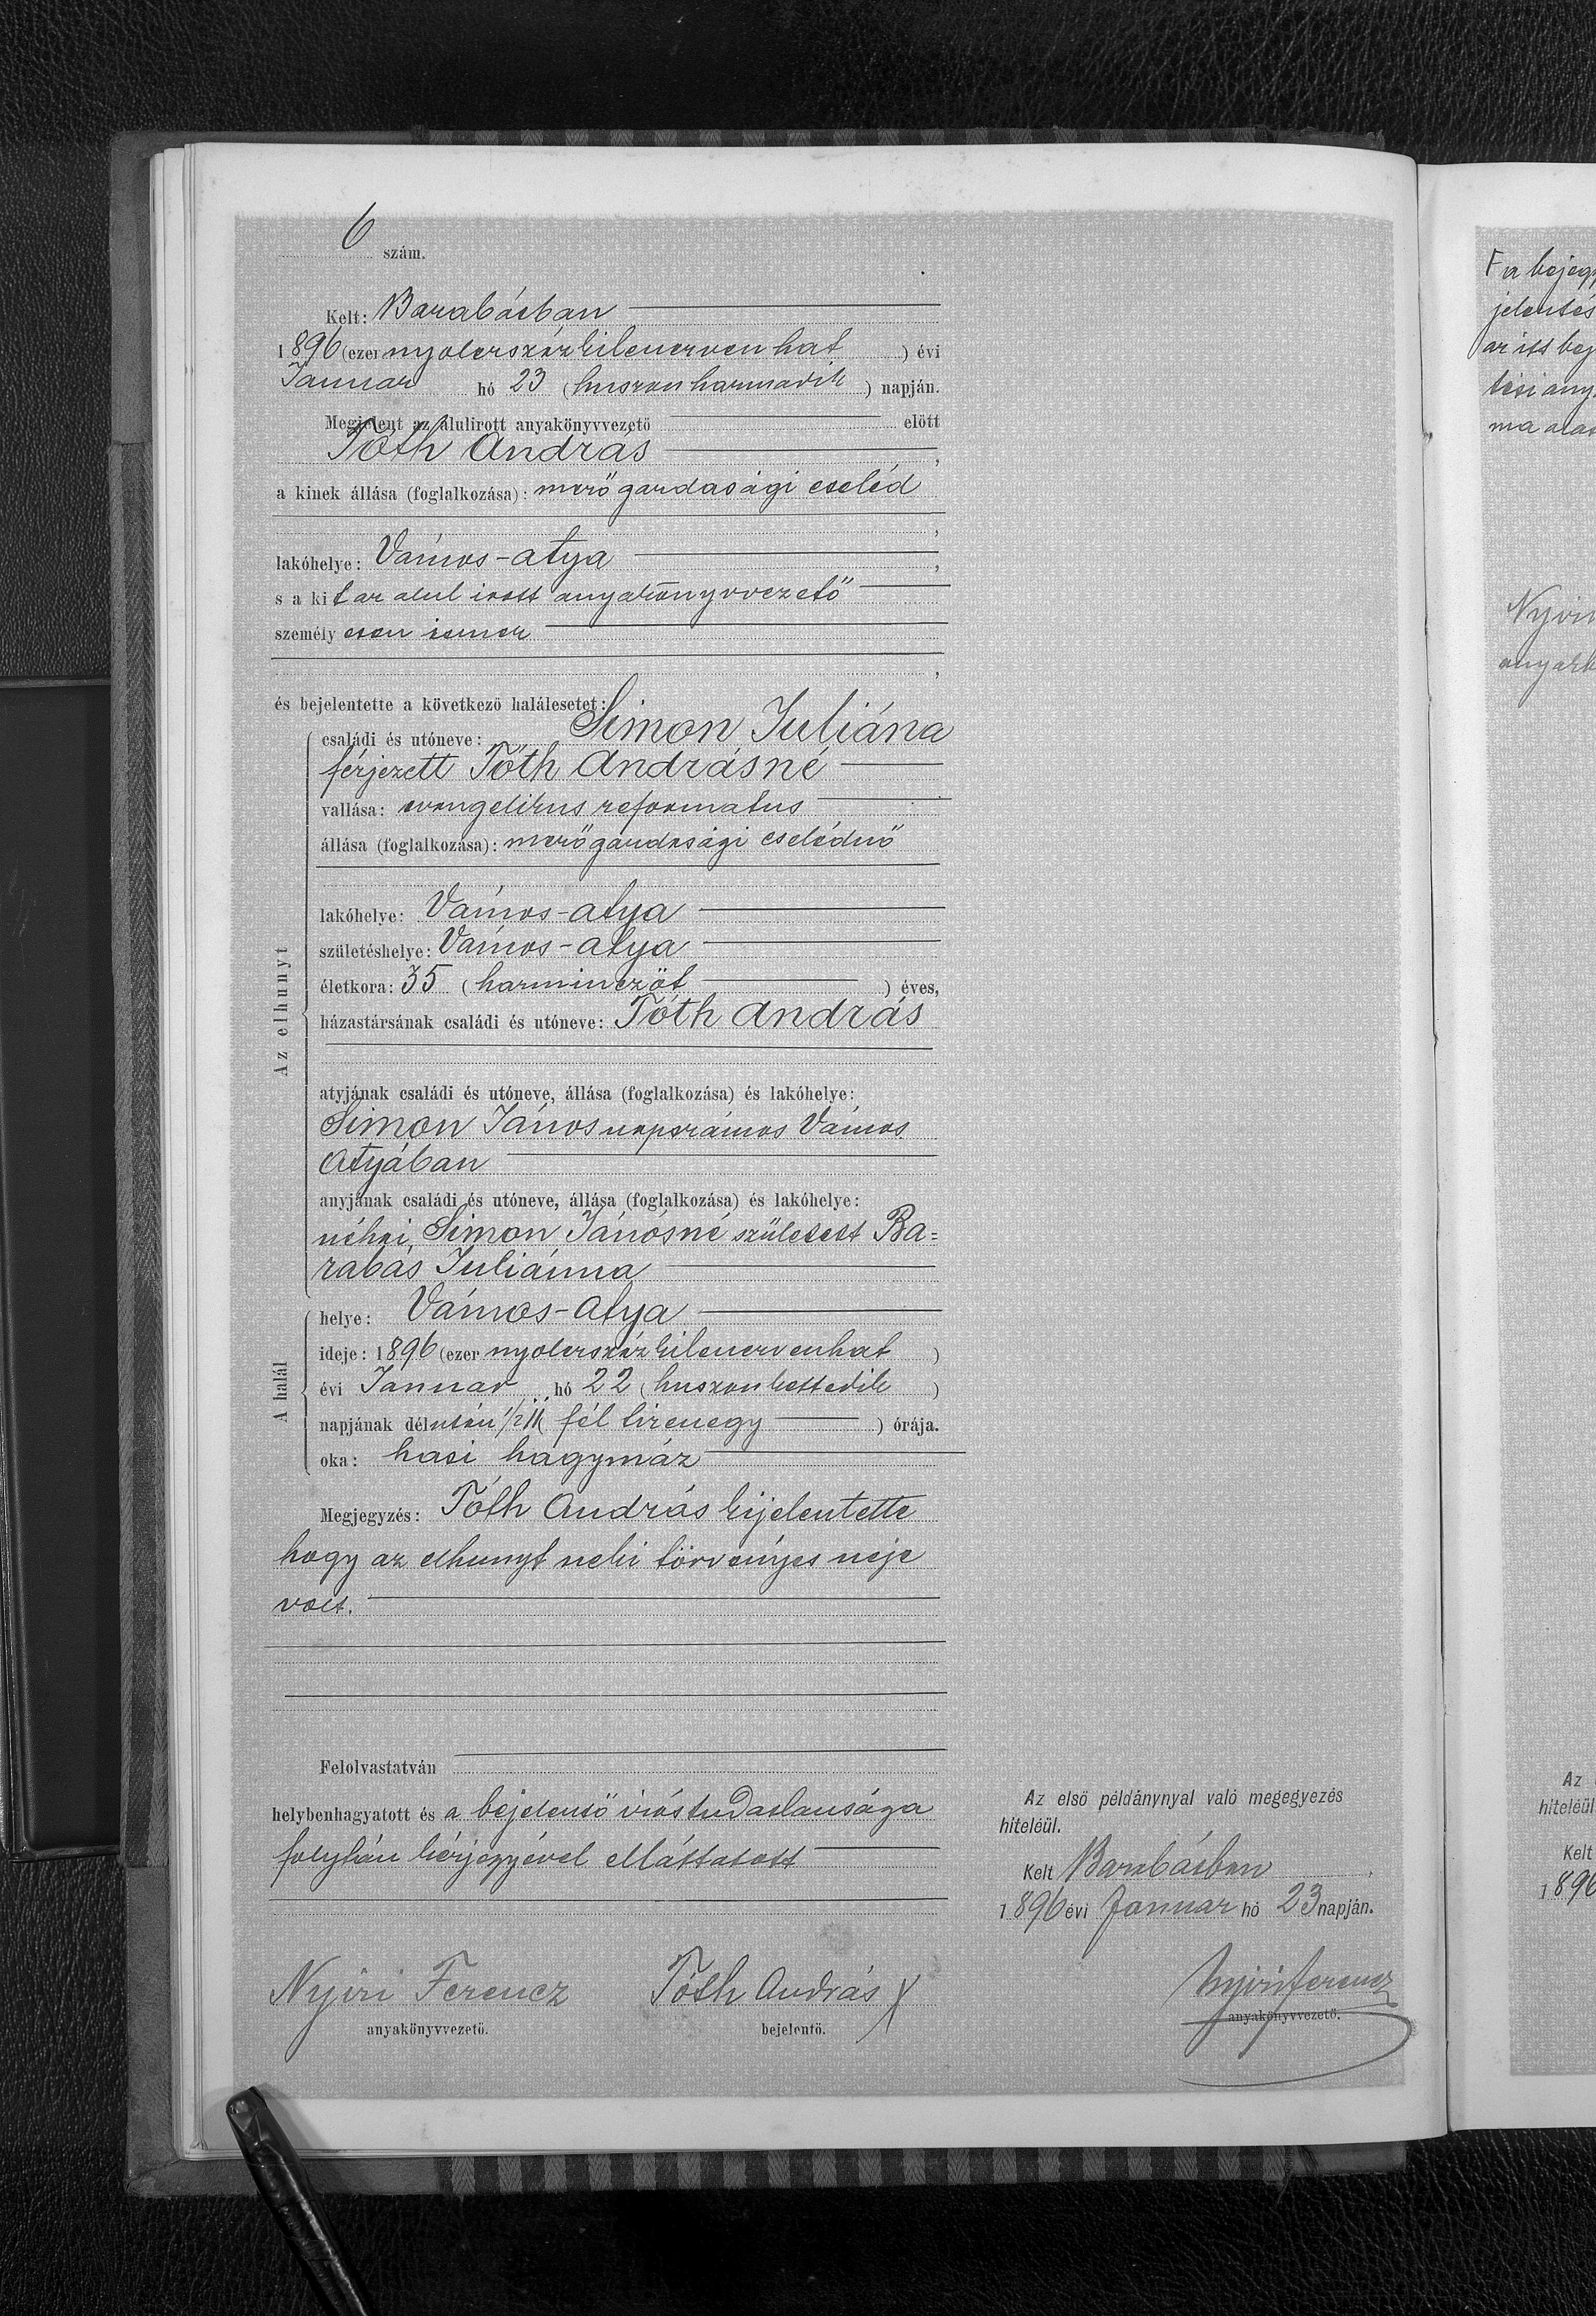 6 szám.
Kelt: Barabásban
1896 (ezer nyolczszázkilenczven hat) évi
Januar hó 23 (huszonharmadik) napján.
Megjelent az alulirott anyakönyvvezető előtt
Tóth András,
a kinek állása (foglalkozása): mezőgazdasági cseléd
,
lakóhelye: Vámos-atya,
s a kit az alul irott anyakönyvvezető
személyesen ismer
,
és bejelentette a következő halálesetet:
Az elhunyt
családi és utóneve: Simon Juliána
férjezett Tóth Andrásné
vallása: evangelikus reformatus
állása (foglalkozása): mezőgazdasági cselédnő
lakóhelye: Vámos-atya
születéshelye: Vámos-atya
életkora: 35 (harminczöt) éves,
házastársának családi és utóneve: Tóth András
atyjának családi és utóneve, állása (foglalkozása) és lakóhelye:
Simon János napszámos Vámos
Atyában
anyjának családi és utóneve, állása (foglalkozása) és lakóhelye:
néhai Simon Jánósné született Ba=
rabás Juliánna
A halál
helye: Vámos-Atya
ideje: 1896 (ezer nyolczszázkilenczvenhat)
évi Januar hó 22 (huszonkettedik)
napjának délután 1/2 11 (fél tizenegy) órája.
oka: hasi hagymáz
Megjegyzés: Tóth András kijelentette
hogy az elhunyt neki törvényes neje
volt.
Felolvastatván
helybenhagyatott és a bejelentő irástudatlansága
folytán kézjegyével elláttatott
Nyiri Ferencz
anyakönyvvezető.
Tóth András X
bejelentő.
Az első példánynyal való megegyezés
hiteléül.
Kelt Barabásban,
1896 évi Januar hó 23 napján.
Nyiri Ferencz
anyakönyvvezető.
a bejegy
jelentés
az itt bej
tési any
ma alat
Nyiri
anyak
Az
hiteléül
Kelt
1896